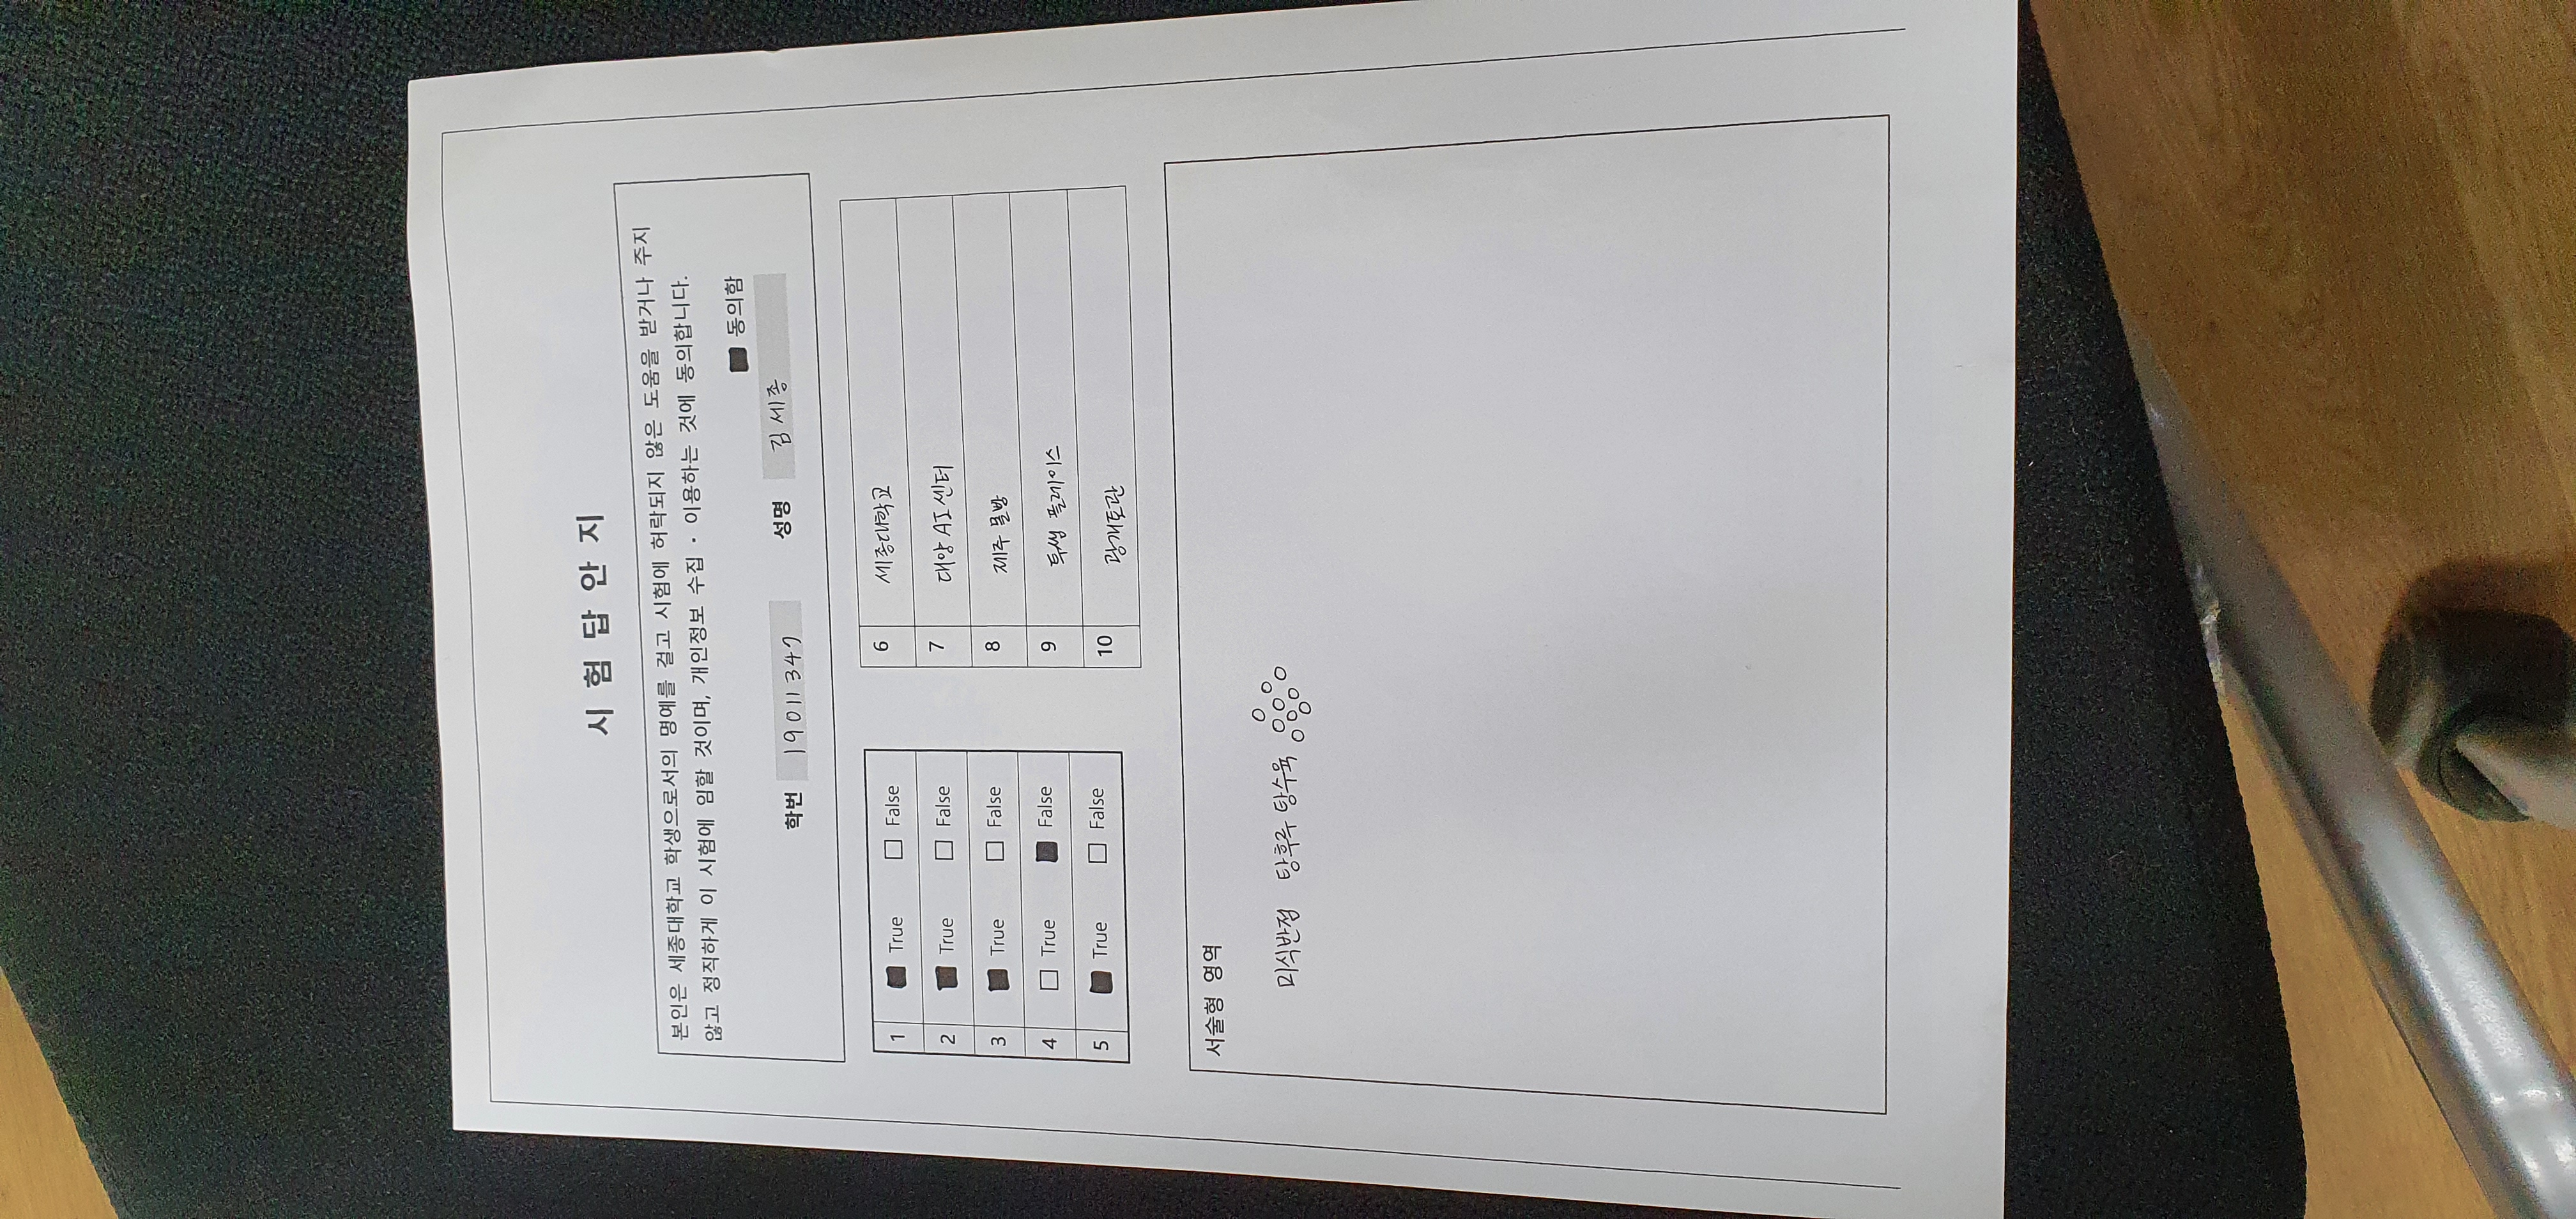 시험답안지
본인은 세종대학교 학생으로서의 명예를 걸고 시험에 허락되지 않은 도움을 받거나 주지
않고 정직하게 이 시험에 임할 것이며, 개인정보 수집・이용하는 것에 동의합니다.
동의함
학번 19011347 성명 김세종
1 True False
2 True False
3 True False
4 True False
5 True False
6 세종대학교
7 대양 AI 센터
8 제주 몰방
9 투썸 플레이스
10 광개토관
서술형 영역
미식반점 탕후루 탕수육